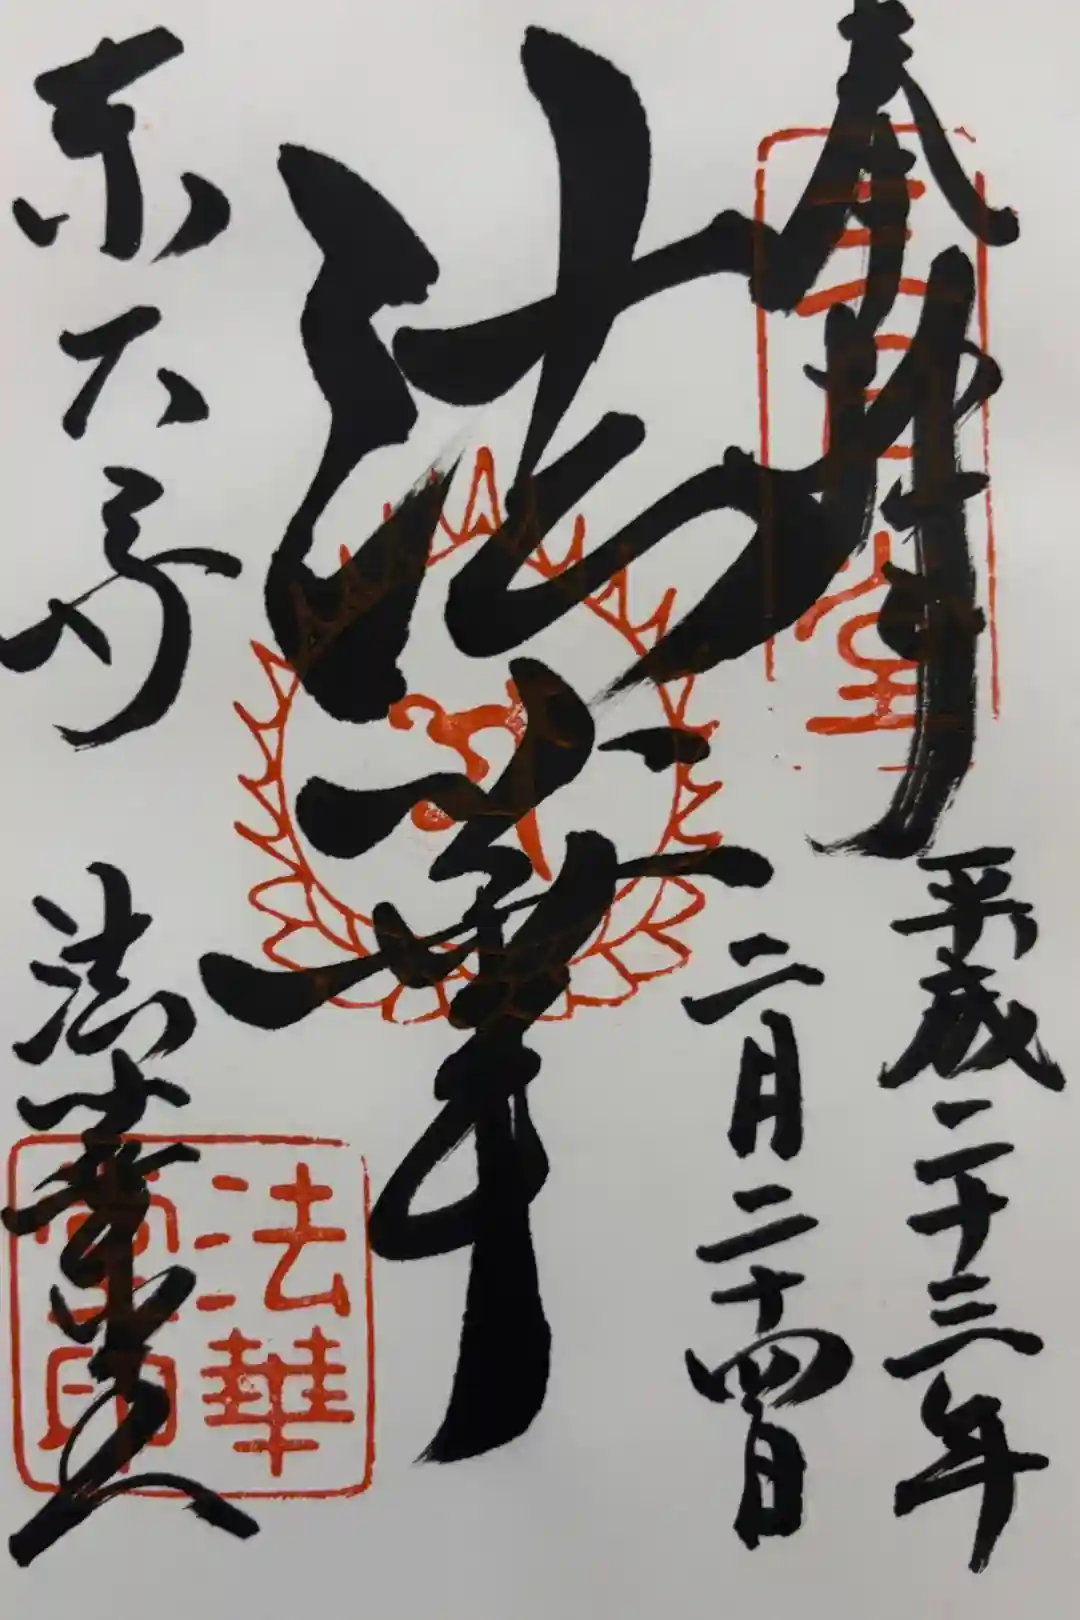 奉拝
平成二十三年
二月二十四日
法華
東大寺
法華堂
法華
堂印